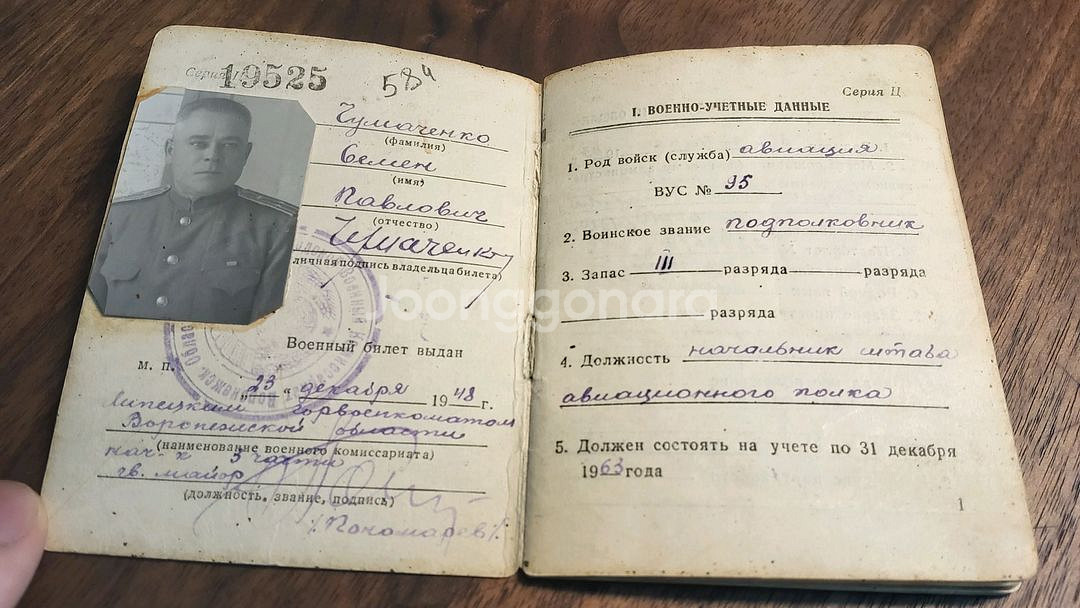 Серия Ц
19525
584
Чумаченко
(фамилия)
Семен
(имя)
Павлович
(отчество)
Чумаченко
(личная подпись владельца билета)
Военный билет выдан
М. П.
„23“ декабря 1948 г.
Липецким горвоенкоматом
Воронежской области
(наименование военного комиссариата)
нач. 3 части
гв. майор
(должность, звание, подпись)
/Пономарев/
Серия Ц
I. ВОЕННО-УЧЕТНЫЕ ДАННЫЕ
1. Род войск (служба) авиация
ВУС № 95
2. Воинское звание подполковник
3. Запас III разряда разряда
разряда
4. Должность начальник штаба
авиационного полка
5. Должен состоять на учете по 31 декабря
1963 года
1
Joonggonara